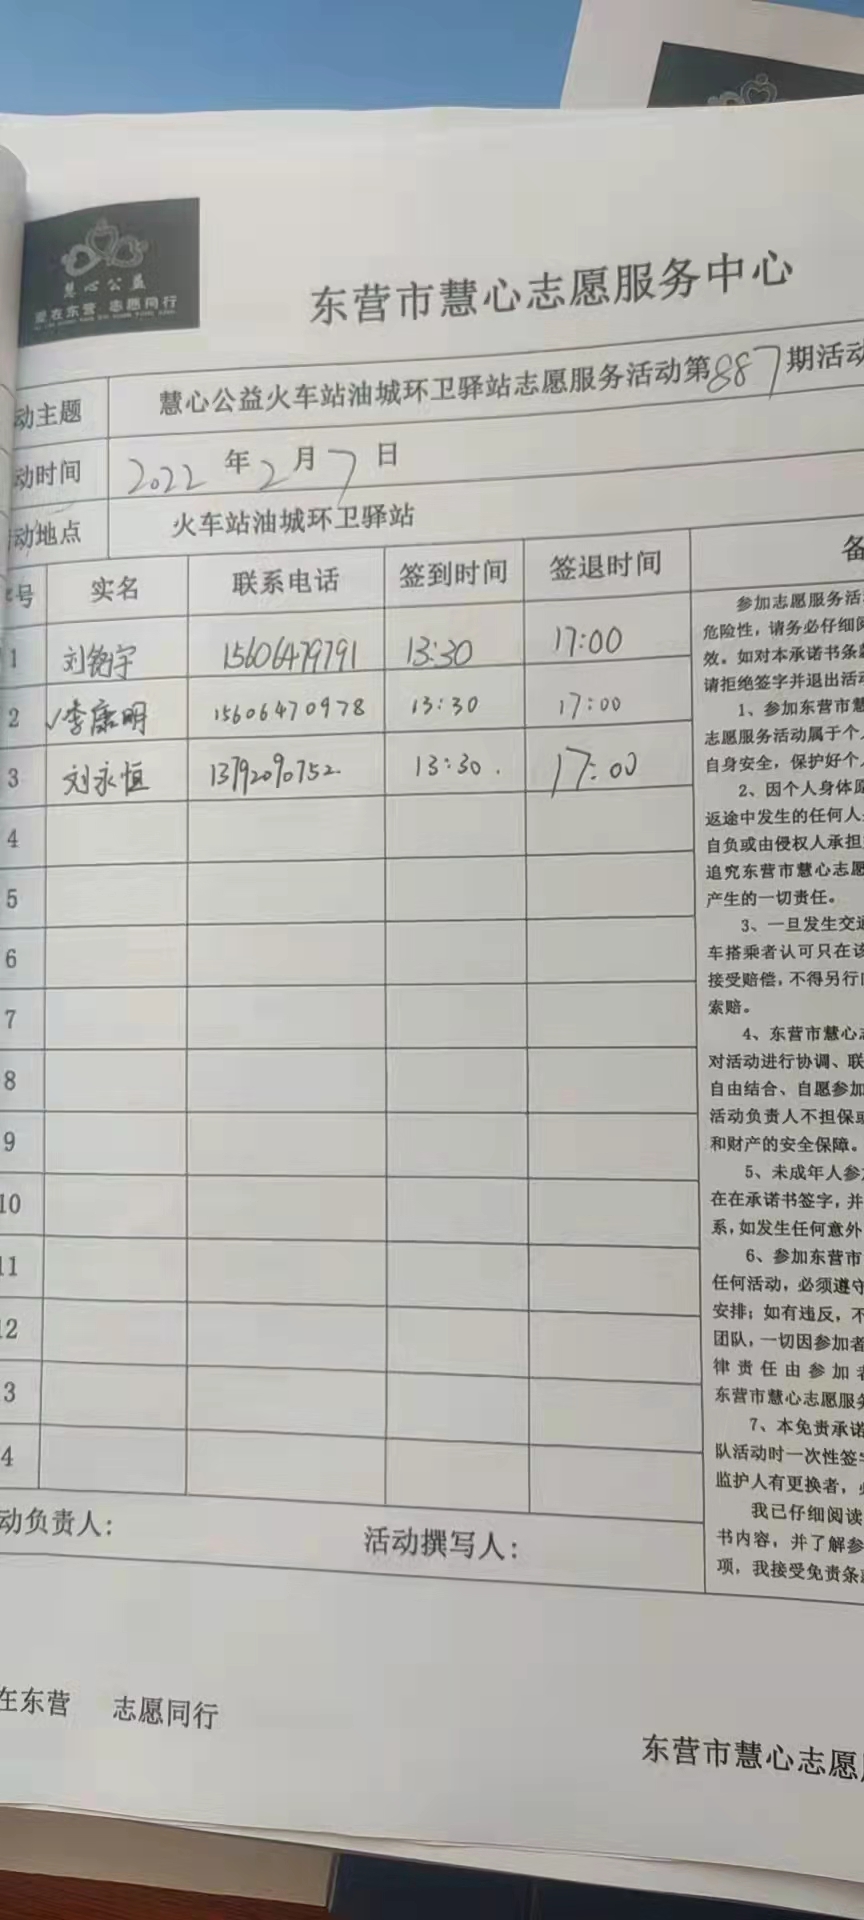 慧心公益
爱在东营 志愿同行
东营市慧心志愿服务中心
动主题 慧心公益火车站油城环卫驿站志愿服务活动第887期活动
动时间 2022年2月7日
动地点 火车站油城环卫驿站
号 实名 联系电话 签到时间 签退时间 备
1 刘铭宇 15606479791 13:30 17:00
2 ✓李康明 15606470978 13:30 17:00
3 刘永恒 13792090752 13:30. 17:00
4
5
6
7
8
9
10
11
12
3
4
参加志愿服务活
危险性，请务必仔细阅
效。如对本承诺书条款
请拒绝签字并退出活动
1、参加东营市慧
志愿服务活动属于个人
自身安全，保护好个人
2、因个人身体原
返途中发生的任何人
自负或由侵权人承担
追究东营市慧心志愿
产生的一切责任。
3、一旦发生交通
车搭乘者认可只在该
接受赔偿，不得另行向
索赔。
4、东营市慧心志
对活动进行协调、联
自由结合、自愿参加
活动负责人不担保或
和财产的安全保障。
5、未成年人参加
在在承诺书签字，并
系，如发生任何意外
6、参加东营市
任何活动，必须遵守
安排；如有违反，不
团队，一切因参加者
律责任由参加者
东营市慧心志愿服务
7、本免责承诺
队活动时一次性签字
监护人有更换者，必
我已仔细阅读
书内容，并了解参
项，我接受免责条款
动负责人： 活动撰写人：
在东营 志愿同行
东营市慧心志愿